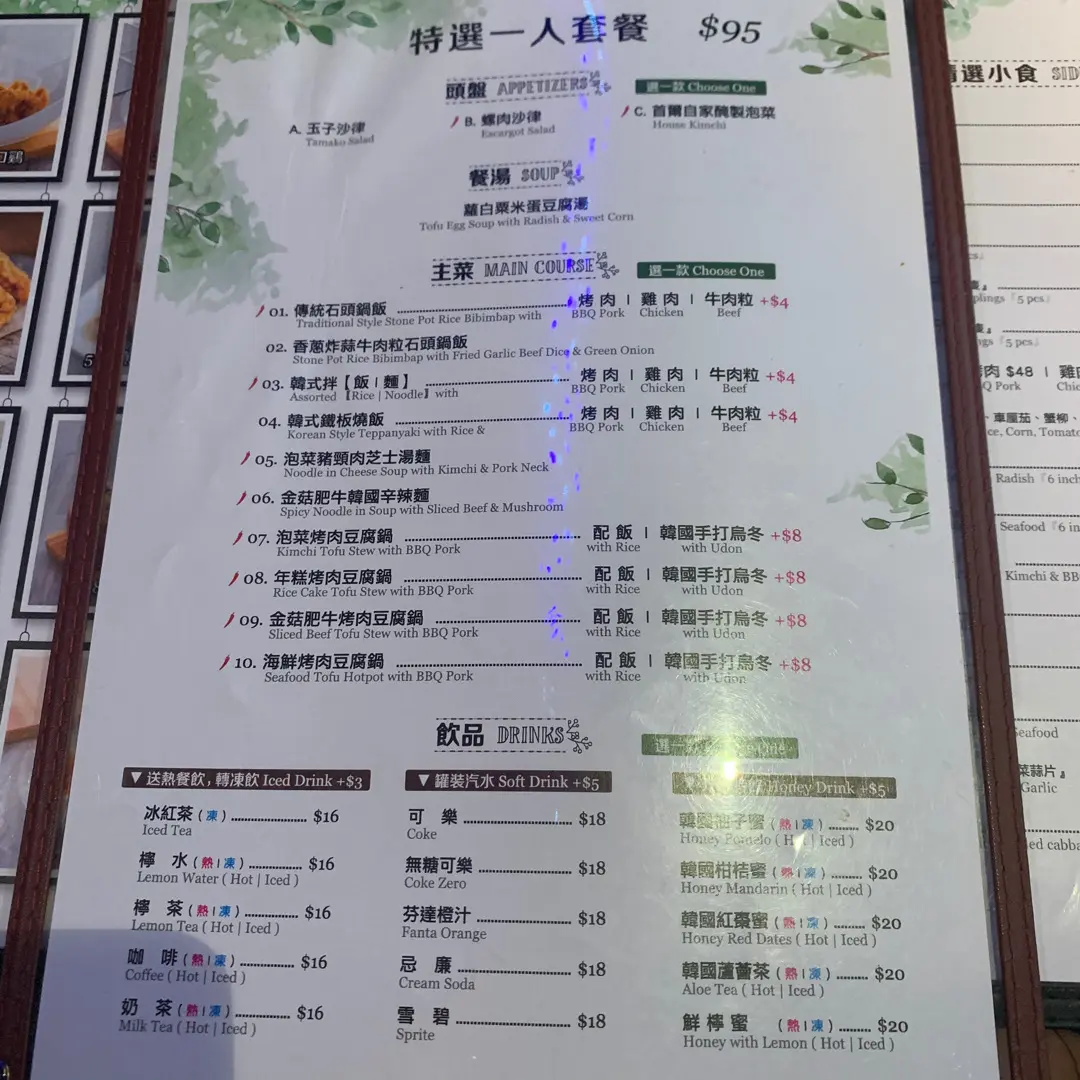 特選一人套餐 $95
頭盤 APPETIZERS 選一款 Choose One
A. 玉子沙律 B. 螺肉沙律 C. 首爾自家醃製泡菜
Tamako Salad Escargot Salad House Kimchi
餐湯 SOUP
蘿白粟米蛋豆腐湯
Tofu Egg Soup with Radish & Sweet Corn
主菜 MAIN COURSE 選一款 Choose One
01. 傳統石頭鍋飯 烤肉 | 雞肉 | 牛肉粒 +$4
Traditional Style Stone Pot Rice Bibimbap with BBQ Pork Chicken Beef
02. 香蔥炸蒜牛肉粒石頭鍋飯
Stone Pot Rice Bibimbap with Fried Garlic Beef Dice & Green Onion
03. 韓式拌【飯 | 麵】 烤肉 | 雞肉 | 牛肉粒 +$4
Assorted【Rice | Noodle】with BBQ Pork Chicken Beef
04. 韓式鐵板燒飯 烤肉 | 雞肉 | 牛肉粒 +$4
Korean Style Teppanyaki with Rice & BBQ Pork Chicken Beef
05. 泡菜豬頸肉芝士湯麵
Noodle in Cheese Soup with Kimchi & Pork Neck
06. 金菇肥牛韓國辛辣麵
Spicy Noodle in Soup with Sliced Beef & Mushroom
07. 泡菜烤肉豆腐鍋 配飯 | 韓國手打烏冬 +$8
Kimchi Tofu Stew with BBQ Pork with Rice with Udon
08. 年糕烤肉豆腐鍋 配飯 | 韓國手打烏冬 +$8
Rice Cake Tofu Stew with BBQ Pork with Rice with Udon
09. 金菇肥牛烤肉豆腐鍋 配飯 | 韓國手打烏冬 +$8
Sliced Beef Tofu Stew with BBQ Pork with Rice with Udon
10. 海鮮烤肉豆腐鍋 配飯 | 韓國手打烏冬 +$8
Seafood Tofu Hotpot with BBQ Pork with Rice with Udon
飲品 DRINKS 選一 One
▼ 送熱餐飲，轉凍飲 Iced Drink +$3
冰紅茶 (凍) $16
Iced Tea
檸水 (熱 | 凍) $16
Lemon Water ( Hot | Iced )
檸茶 (熱 | 凍) $16
Lemon Tea ( Hot | Iced )
咖啡 (熱 | 凍) $16
Coffee ( Hot | Iced )
奶茶 (熱 | 凍) $16
Milk Tea ( Hot | Iced )
▼ 罐裝汽水 Soft Drink +$5
可樂 $18
Coke
無糖可樂 $18
Coke Zero
芬達橙汁 $18
Fanta Orange
忌廉 $18
Cream Soda
雪碧 $18
Sprite
Honey Drink +$5
韓國柚子蜜 (熱 | 凍) $20
Honey Pomelo ( Hot | Iced )
韓國柑桔蜜 (熱 | 凍) $20
Honey Mandarin ( Hot | Iced )
韓國紅棗蜜 (熱 | 凍) $20
Honey Red Dates ( Hot | Iced )
韓國蘆薈茶 (熱 | 凍) $20
Aloe Tea ( Hot | Iced )
鮮檸蜜 (熱 | 凍) $20
Honey with Lemon ( Hot | Iced )
選小食 SID
plings『5 pcs』
gs『5 pcs』
肉 $48 |
Q Pork Chic
、車厘茄、蟹柳、
ce, Corn, Tomato
Radish『6 inch
Seafood『6 in
Kimchi & BB
Seafood
菜蒜片』
Garlic
ed cabba